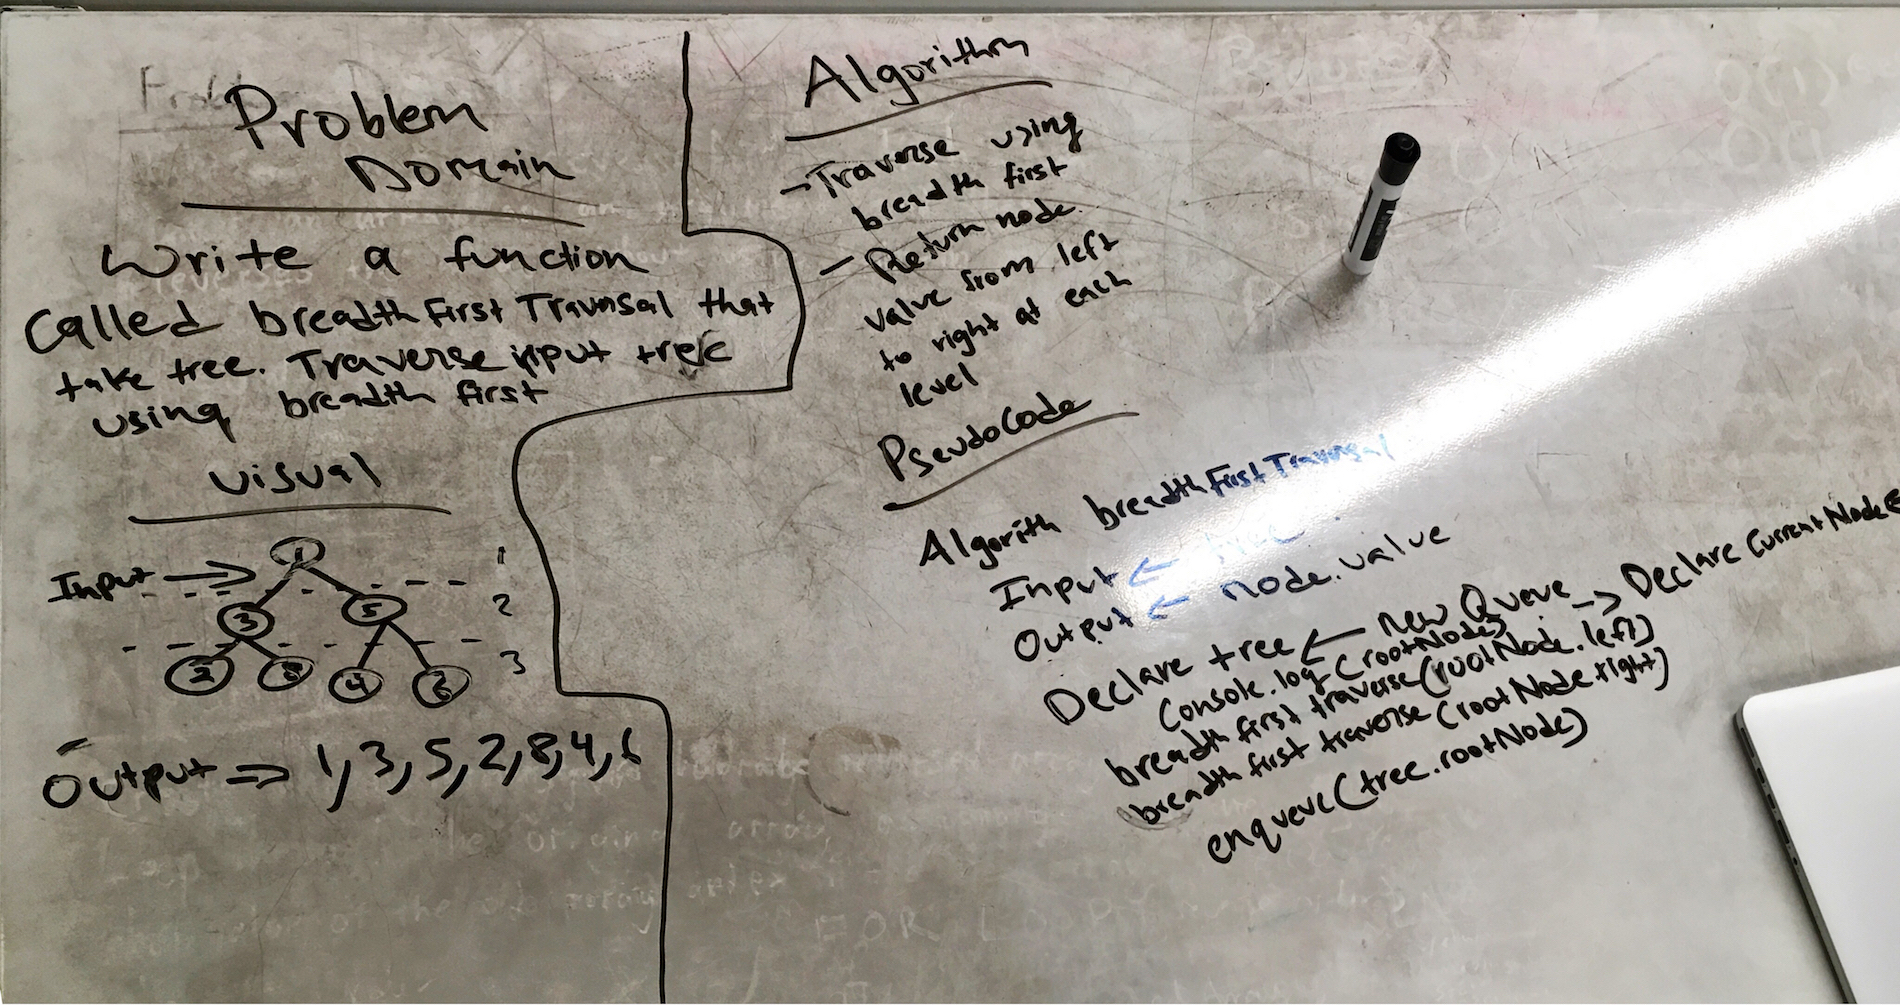 Problem
Domain
Write a function
called breadth First Traversal that
take tree. Traverse input tree
using breadth first
Visual
Input
1
1
3
5
2
2
8
4
6
3
Output => 1, 3, 5, 2, 8, 4, 6
Algorithm
- Traverse using
breadth first
- Return node
value from left
to right at each
level
PseudoCode
Algorith breadthFirstTraversal
Input ← tree
Output ← node.value
Declare tree ← new Queue -> Declare CurrentNode
Console.log(rootNode)
breadth first traverse(rootNode.left)
breadth first traverse(rootNode.right)
enqueue(tree.rootNode)